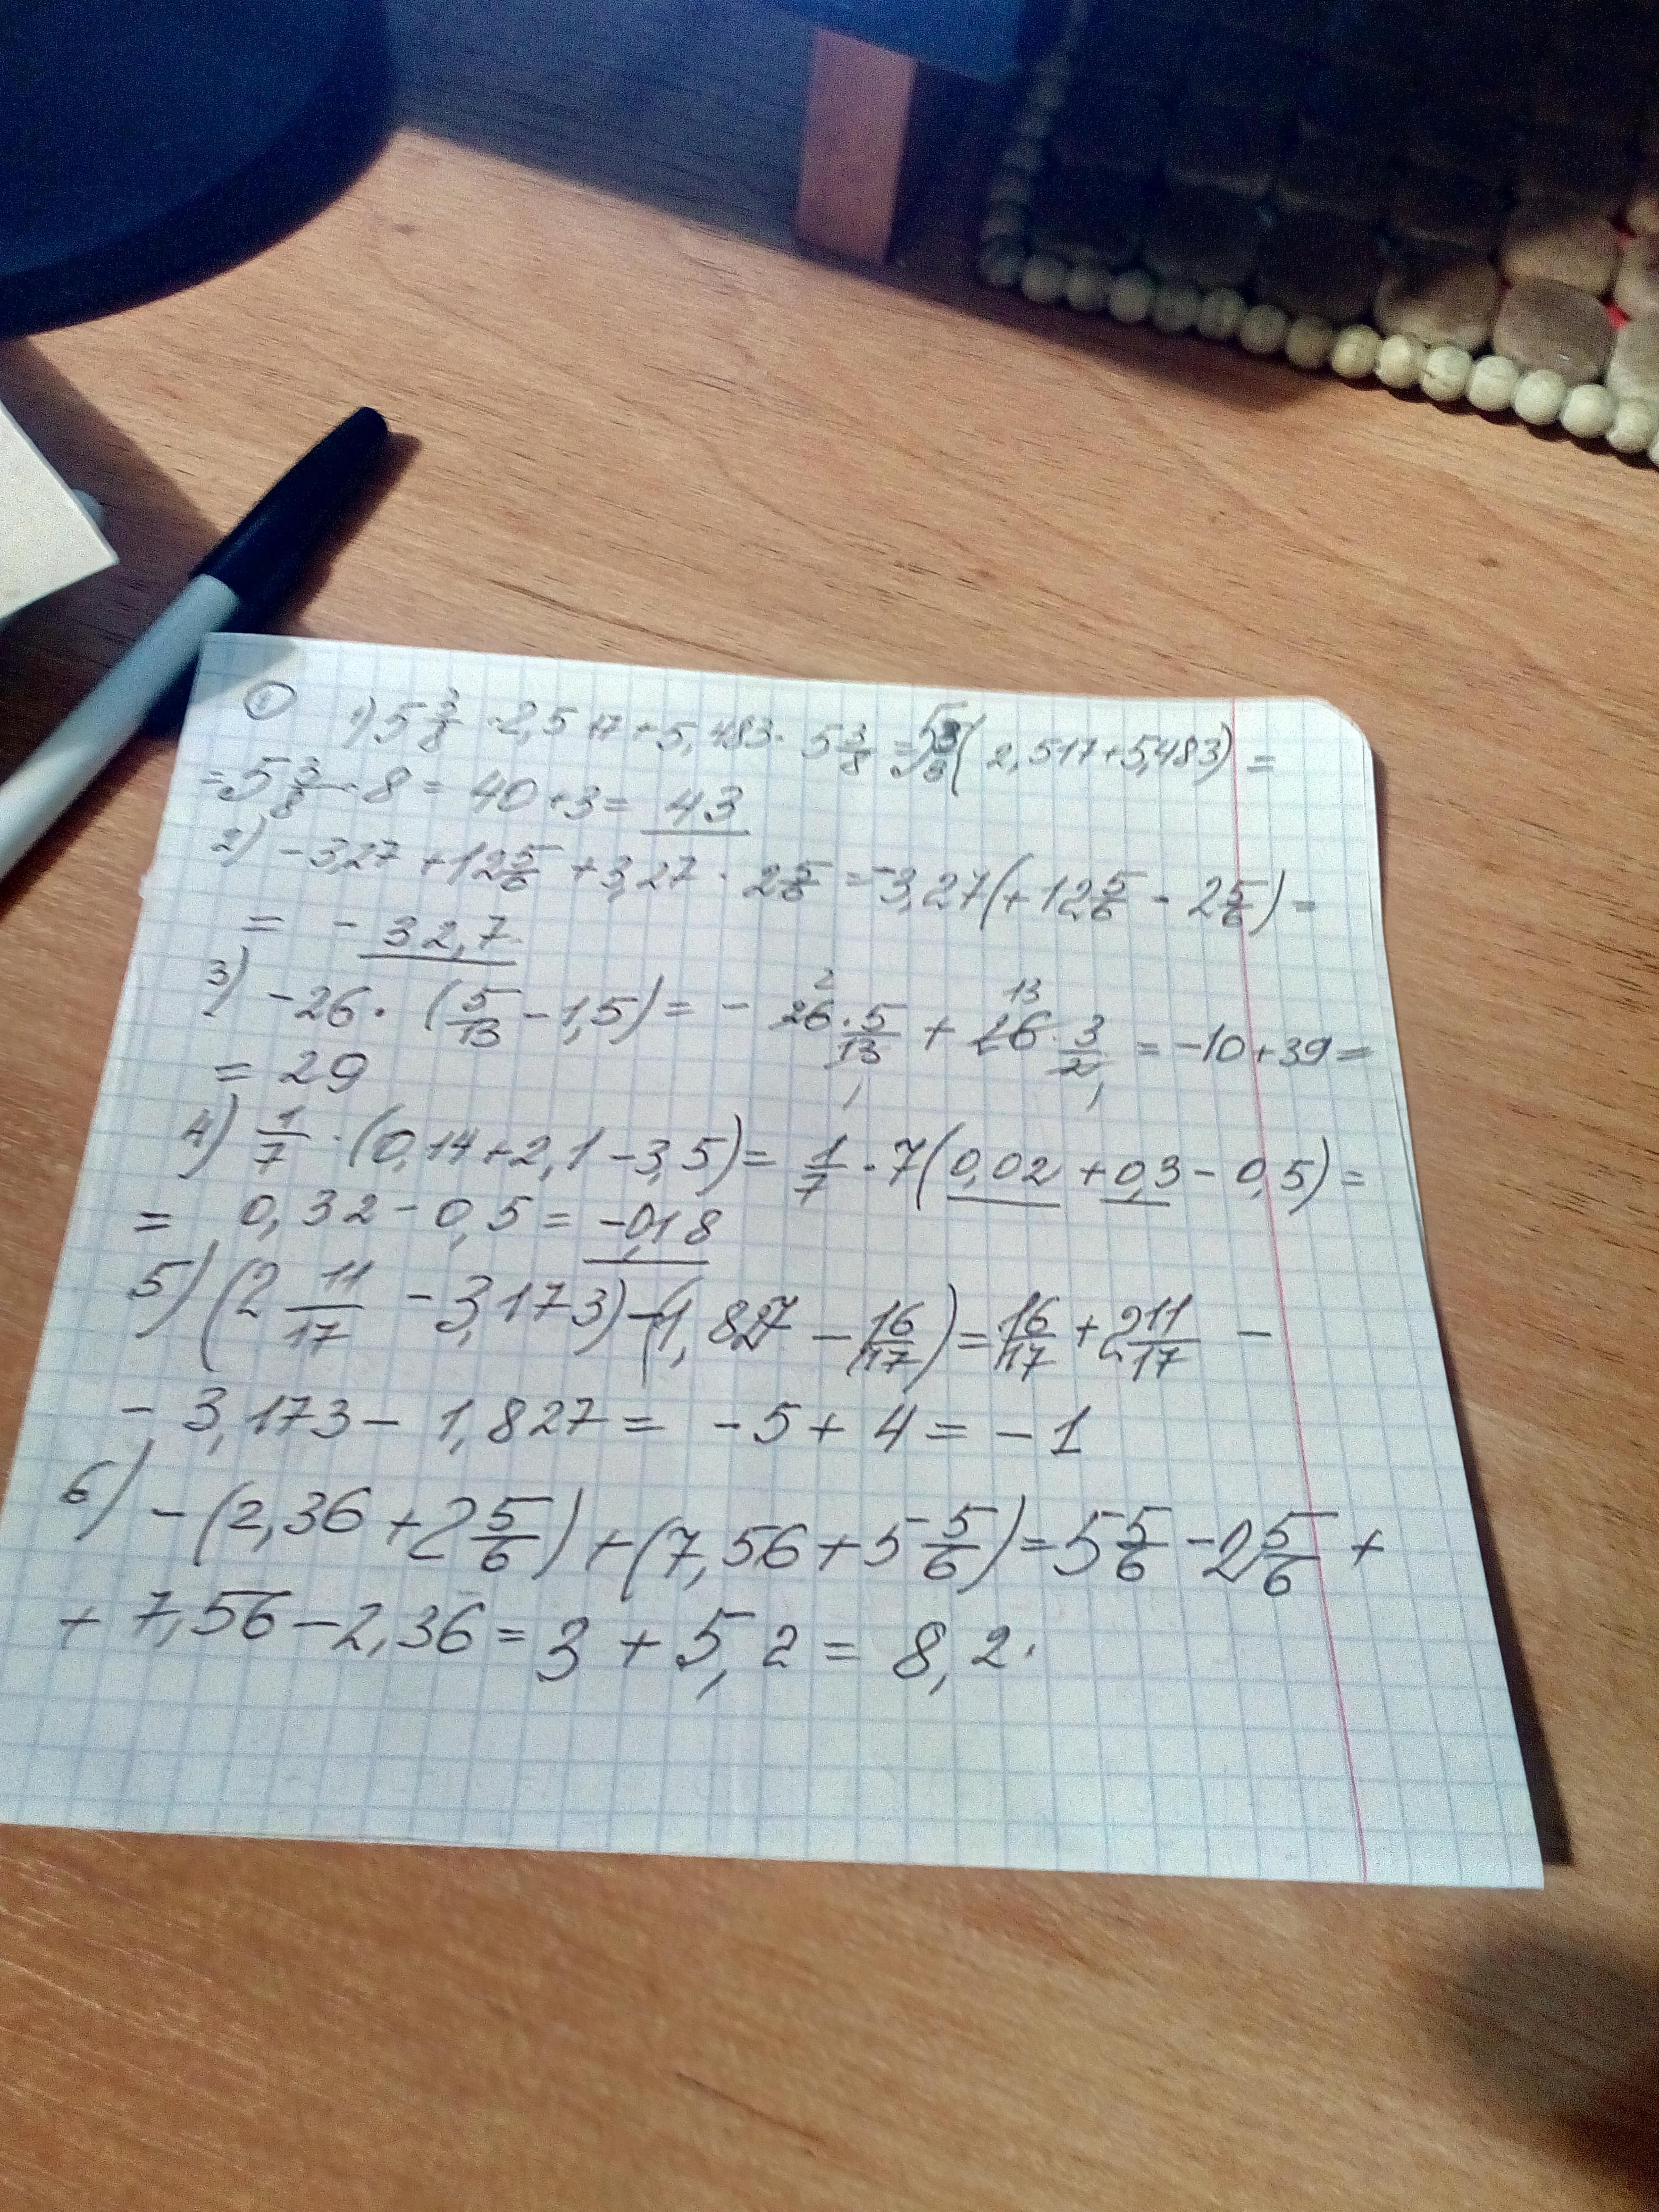 ① 1) 5 3/8 · 2,517 + 5,483 · 5 3/8 = 5 3/8 ( 2,517 + 5,483) =
= 5 3/8 · 8 = 40 + 3 = 43
2) - 3,27 + 12 5/6 + 3,27 · 2 5/6 = -3,27(+12 5/6 - 2 5/6) =
= - 32,7
3) -26 · (5/13 - 1,5) = - 26 · 5/13 + 26 · 3/2 = -10 + 39 =
= 29
4) 1/7 · (0,14 + 2,1 - 3,5) = 1/7 · 7(0,02 + 0,3 - 0,5) =
= 0,32 - 0,5 = -0,18
5) (2 11/17 - 3,173) - (1,827 - 16/17) = 16/17 + 2 11/17 -
- 3,173 - 1,827 = -5 + 4 = -1
6) - (2,36 + 2 5/6) + (7,56 + 5 5/6) = 5 5/6 - 2 5/6 +
+ 7,56 - 2,36 = 3 + 5,2 = 8,2.